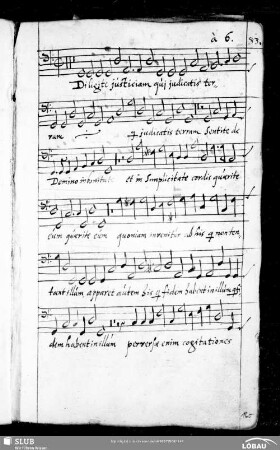 à 6. 83.
Diligite justiciam qui judicatis ter,
ram judicatis terram. Sentite de
Domino in bonitate et in Simplicitate cordis quærite
eum quærite eum quoniam invenitur ab his q non ten,
tant illum apparet autem his q fidem habent in illum
dem habent in illum perversæ enim cogitationes
SLUB
LÖBAU